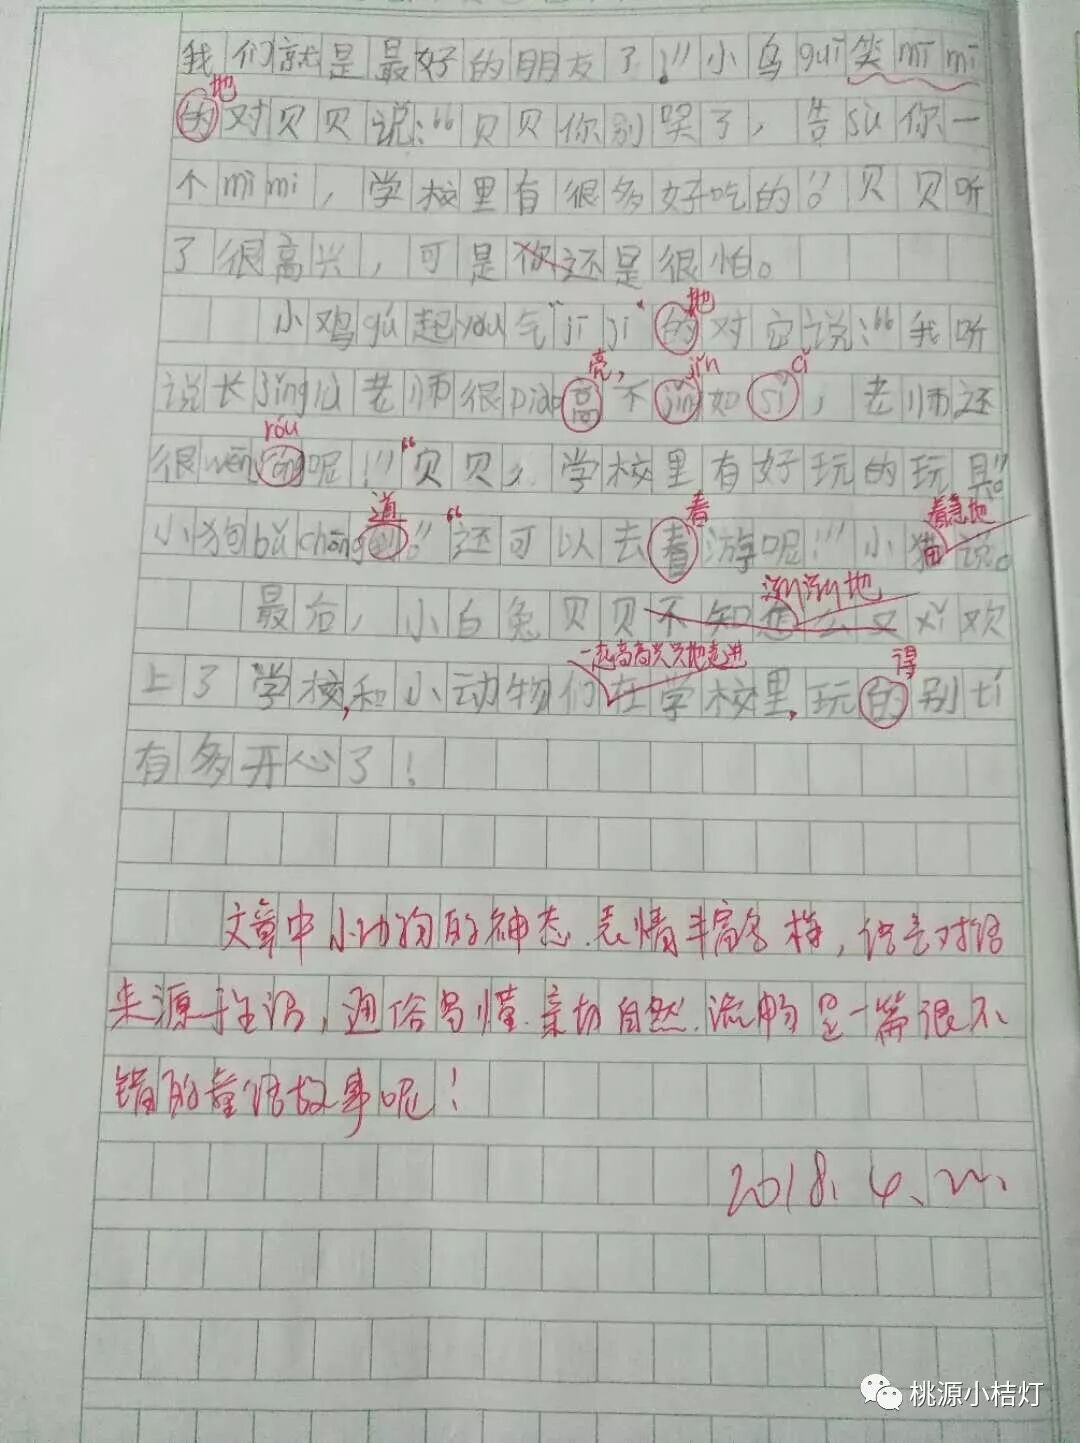 我们就是最好的朋友了！”小乌guī笑mī mī
地
的对贝贝说：“贝贝你别哭了，告sù你一
个mì mì，学校里有很多好吃的。”贝贝听
了很高兴，可是你还是很怕。
小鸡gǔ起yǒng气“jī jī”的对它说：“我听
地
说长jǐng lù老师很piào高不jǐn如sǐ，老师还
亮， jǐn cǐ
很wēn 呢！”“贝贝，学校里有好玩的玩具。”
róu
小狗bǔ chōng到。”“还可以去看游呢！”小猫说。
道 春 着急地
最后，小白兔贝贝不知怎么又xǐ欢
渐渐地
上了学校，和小动物们在学校里，玩的别tí
一起高高兴兴地走进 得
有多开心了！
文章中小动物的神态、表情丰富多样，语言对话
来源于生活，通俗易懂、亲切自然、流畅是一篇很不
错的童话故事呢！
2018、4、22、
桃源小桔灯